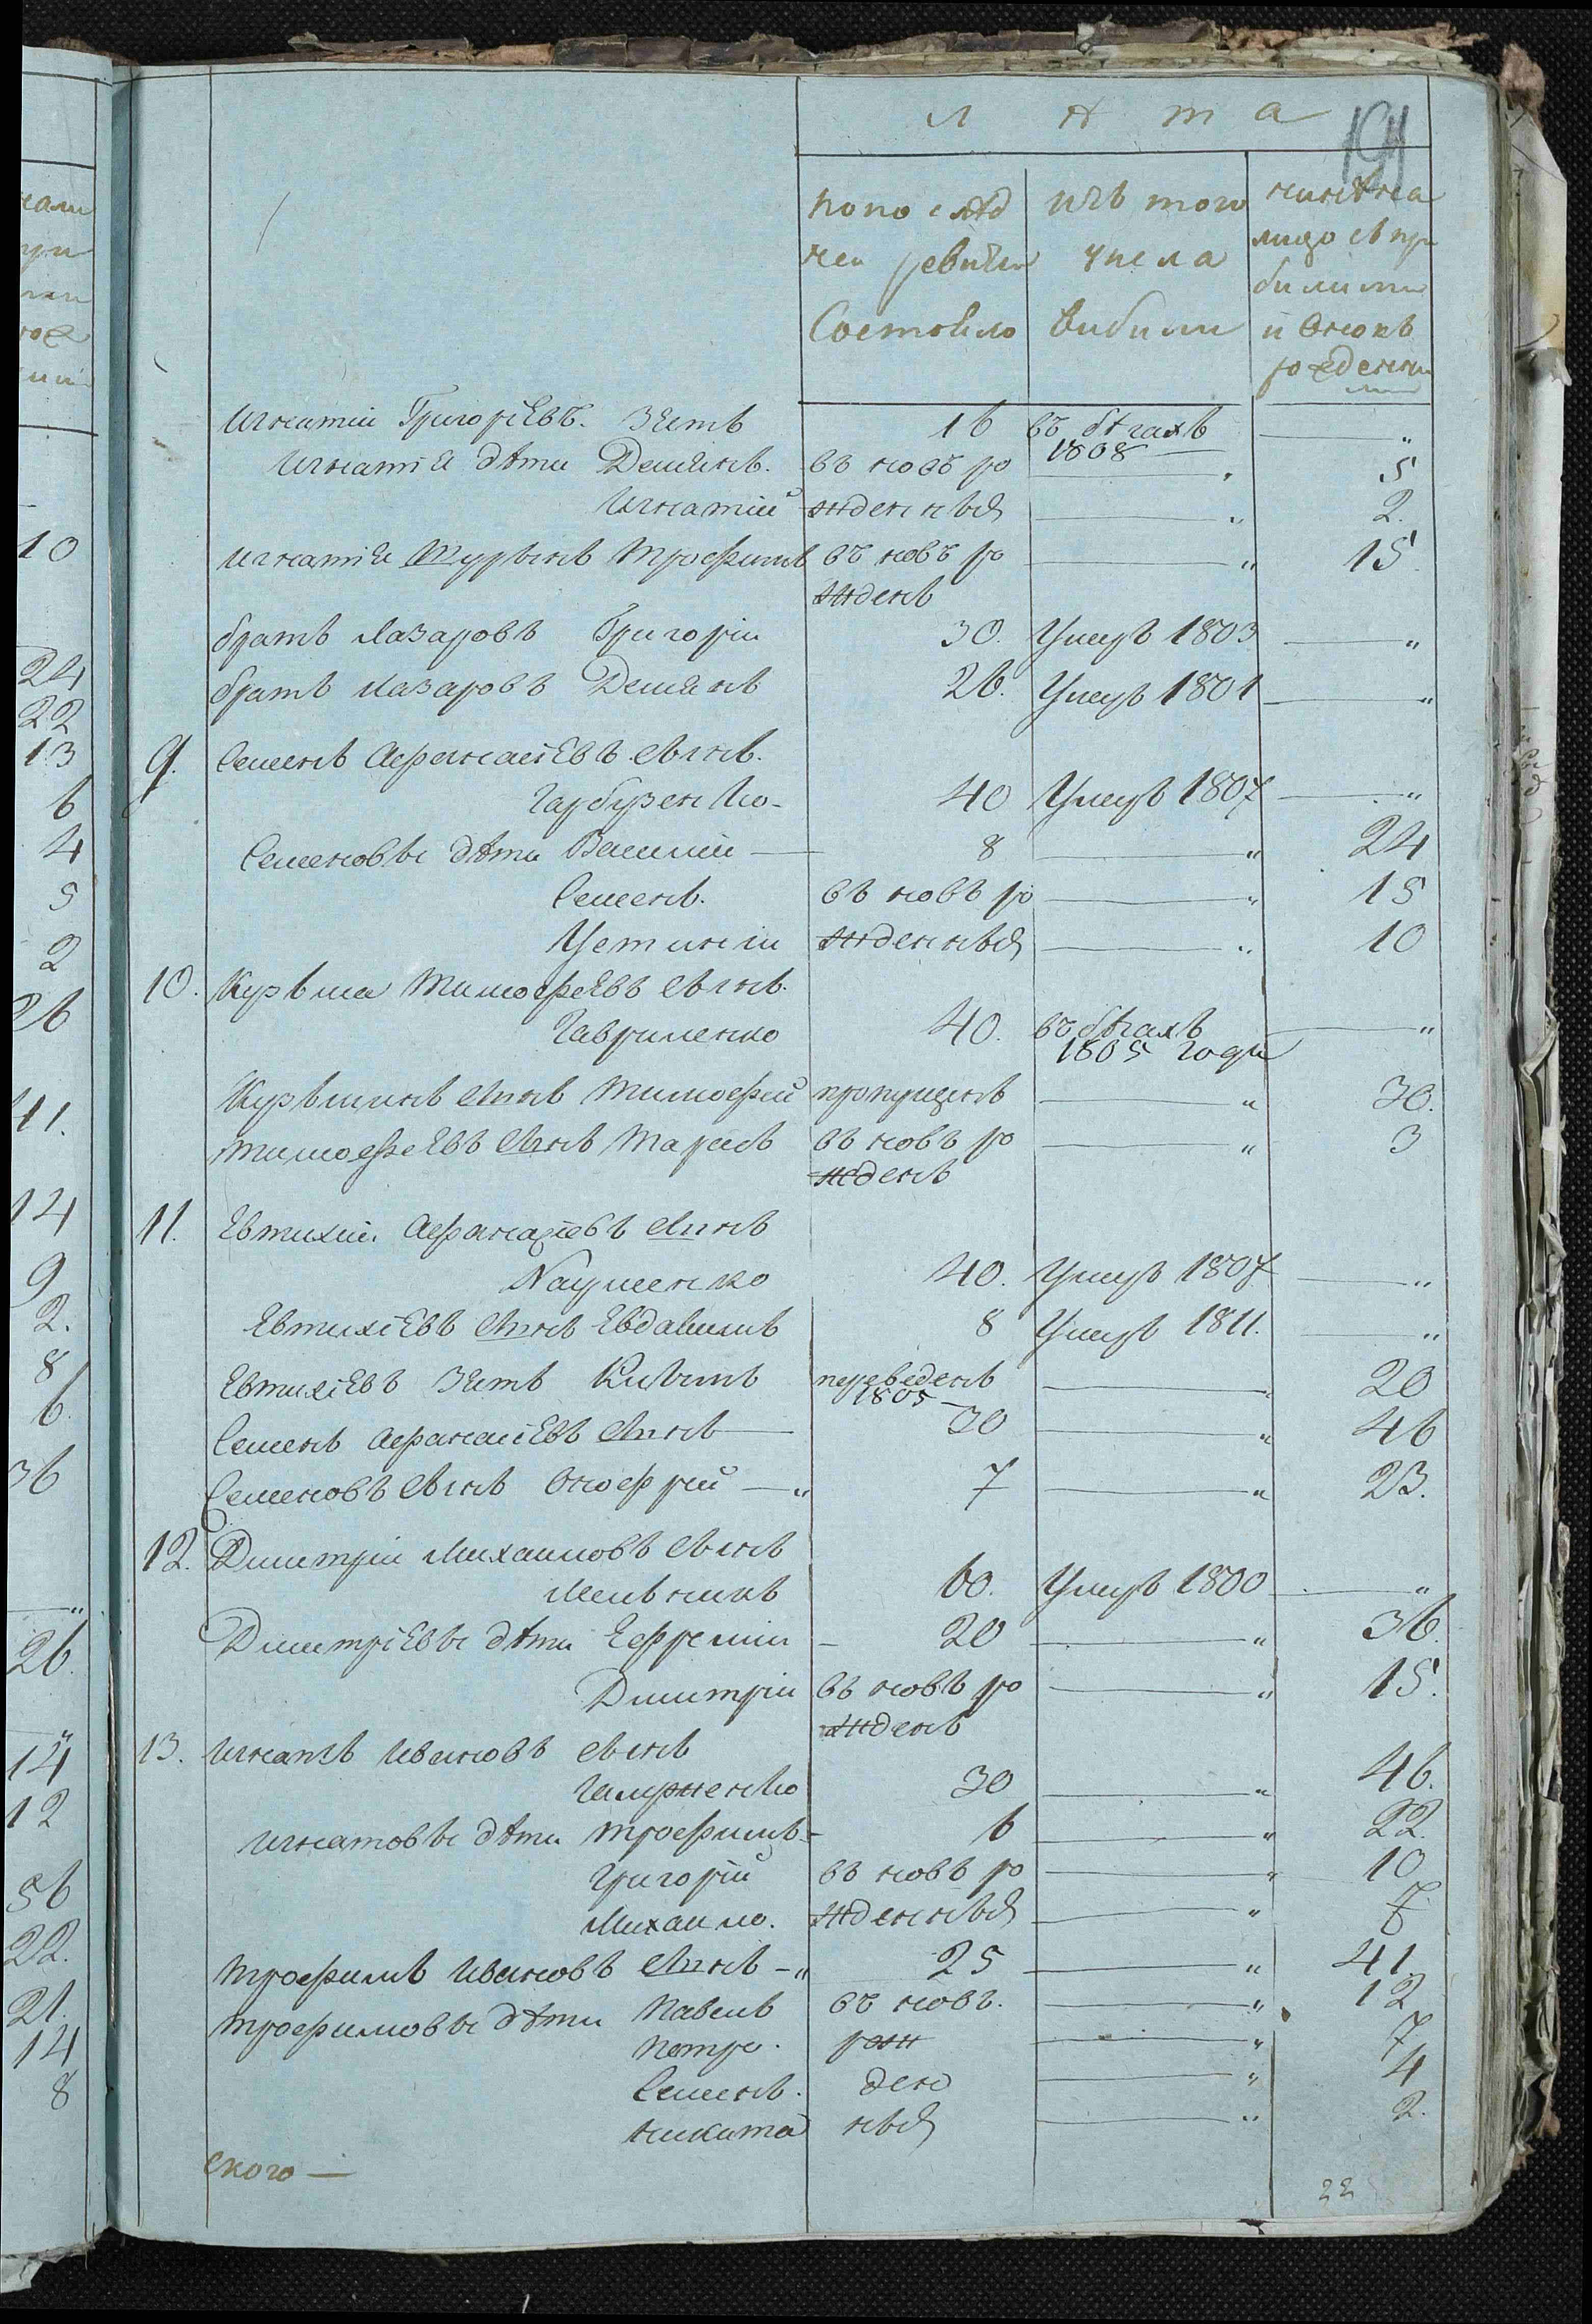 лѣта
191
по послѣд ней ревизіи Состояло
изъ того числа вибили
нинѣ на лицо съ при билими и вновь рожденни ми
Игнатій Григоріевъ. зять 16 въ бѣгахъ 1808 — "
Игнатія дѣти Демянъ. въ новъ ро — " 5
Игнатій жденныя — " 2.
Игнатія Шурынъ Трофимъ въ новъ ро — " 15.
жденъ
братъ Лазаровъ Григорій 30. Умеръ 1803 — "
братъ Лазаровъ Демянъ 26. Умеръ 1801 — "
9. Семенъ Афанасіевъ сынъ.
Гарбузенко 40 Умеръ 1807 — "
Семеновы дѣти Василій — 8 — " 24
Семенъ. въ новъ ро — " 15
Устиній жденныя — " 10
10. Кузьма Тимофеевъ сынъ.
Гавриленко 40. въ бѣгахъ — "
1805 года
Кузьминъ сынъ Тимофей пропущенъ — " 30.
Тимофеевъ сынъ Тарасъ въ новъ ро — " 3
жденъ
11. Евтихій Афанасіевъ сынъ
Науменко 40. Умеръ 1807 — "
Евтихіевъ сынъ Евдакимъ 8 Умеръ 1811. — "
Евтихіевъ зять переведенъ — " 20
1805
Семенъ Афанасіевъ сынъ — 30 — " 46
Семеновъ сынъ Онофрій — " 7 — " 23.
12. Димитрій Михаиловъ сынъ
Мельникъ 60. Умеръ 1800 — "
Димитріевы дѣти Ефремій — 20 — " 36.
Димитрій въ новъ ро — " 15.
жденъ
13. Игнатъ Ивановъ сынъ
30 — " 46.
Игнатовы дѣти Трофимъ — 6 — " 22.
Григорій въ новъ ро — " 10
Михаило. жденныя — " 7
Трофимъ Ивановъ сынъ — " 25 — " 41.
Трофимовы дѣти Павелъ въ новъ. — " 12
Петро. рож — " 7
Семенъ. ден — " 4
Никита ныя — " 2.
ского —
22